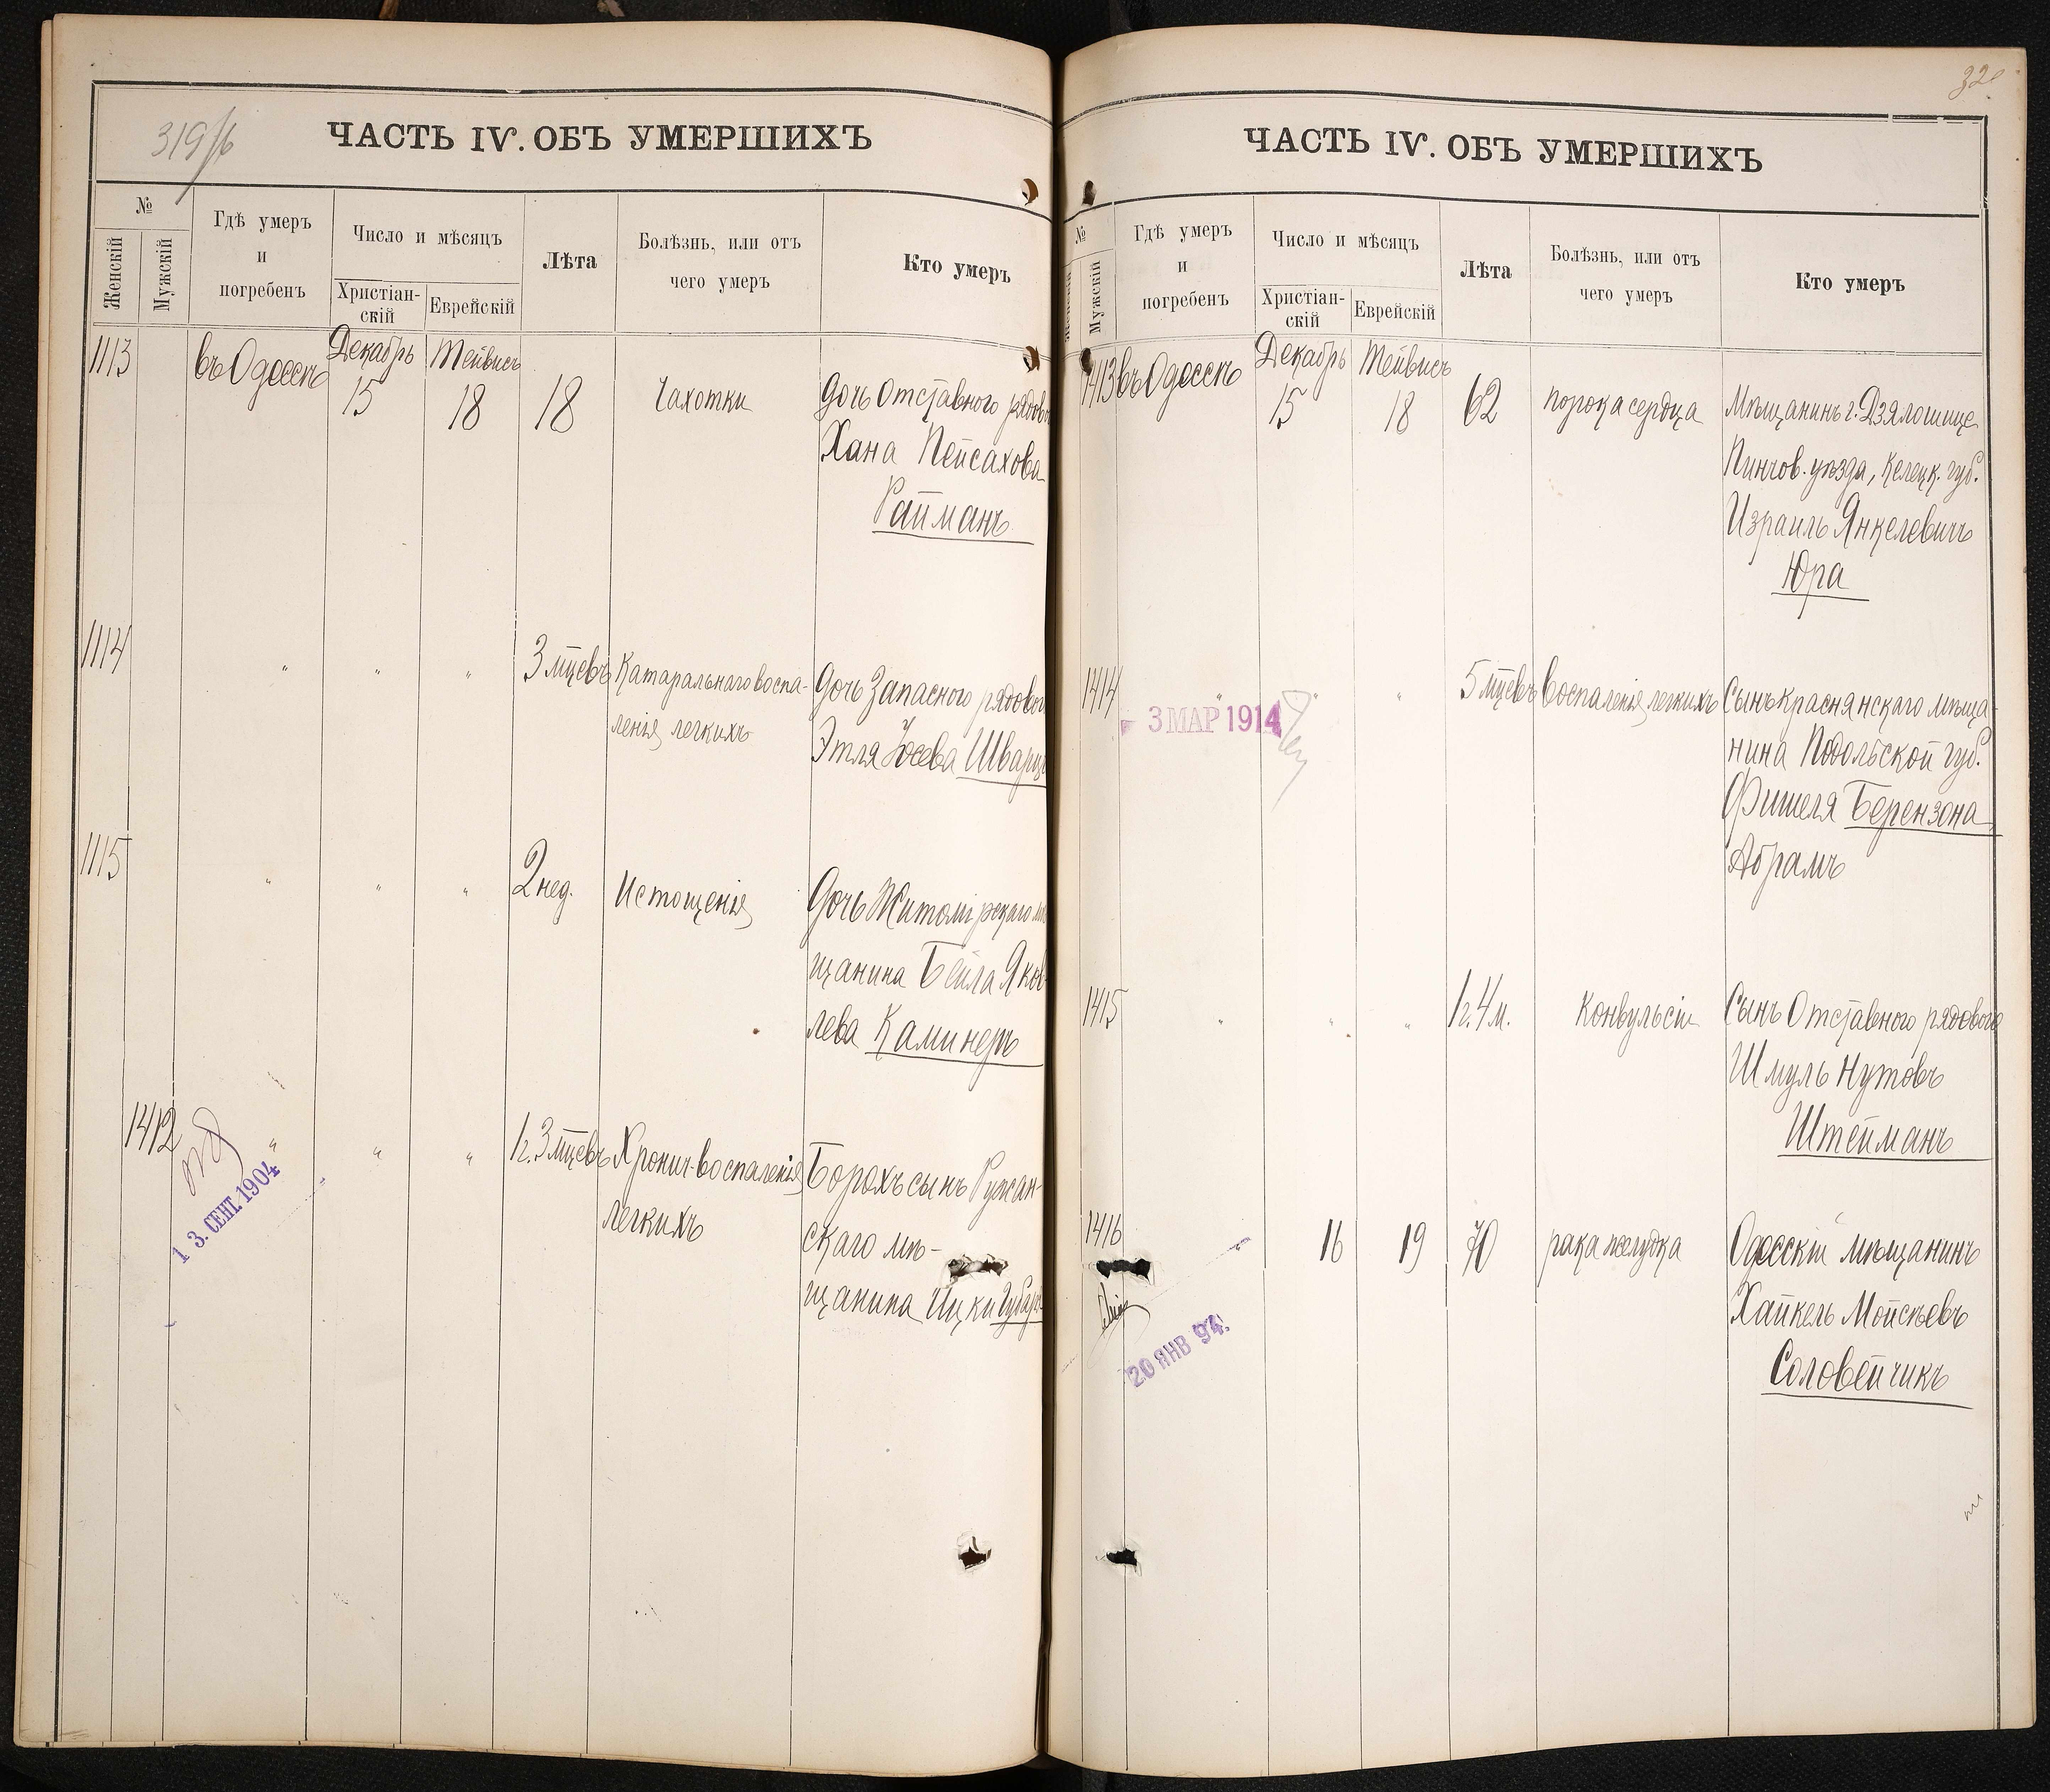 319/b
ЧАСТЬ IV. ОБЪ УМЕРШИХЪ
№
Женскій
Мужскій
Гдѣ умеръ
и
погребенъ
Число и мѣсяцъ
Христіан-
скій
Еврейскій
Лѣта
Болѣзнь, или отъ
чего умеръ
Кто умеръ
1113
въ Одессѣ
Декабрь
15
Тейвисъ
18
18
Чахотки
Дочь Отставного рядово
Хана Пейсахова
Райманъ
1114
" " "
3 мцевъ
Катаральнаго воспа-
ленія легкихъ
Дочь Запасного рядовог
Этля Іосева Шварцъ
1115
" " "
2 нед.
Истощенія
Дочь Житомірскаго мѣ
щанина Бейла Яков
лева Каминеръ
1412
13. СЕНТ. 1904
" " "
1 г. 3 мцевъ
Хронич. воспаленія
легкихъ
Борохъ сынъ Ружан-
скаго мѣ-
щанина Ицки
32
ЧАСТЬ IV. ОБЪ УМЕРШИХЪ
№
Женскій
Мужскій
Гдѣ умеръ
и
погребенъ
Число и мѣсяцъ
Христіан-
скій
Еврейскій
Лѣта
Болѣзнь, или отъ
чего умеръ
Кто умеръ
1413
въ Одессѣ
Декабрь
15
Тейвисъ
18
62
порока сердца
Мѣщанинъ г. Дзялошице
Пинчов. уѣзда, Келецк. губ.
Израиль Янкелевичъ
Юра
1414
3 МАР 1914
" " "
5 мцевъ
Воспаленія легкихъ
Сынъ Краснянскаго мѣща-
нина Подольской губ.
Фишеля Берензона
Абрамъ
1415
" " "
1 г. 4 м.
Конвульсіи
Сынъ Отставного рядового
Шмуль Нутовъ
Штейманъ
1416
20 ЯНВ 94.
"
16
19
70
рака желудка
Одесскій мѣщанинъ
Хайкель Мойсѣевъ
Соловейчикъ